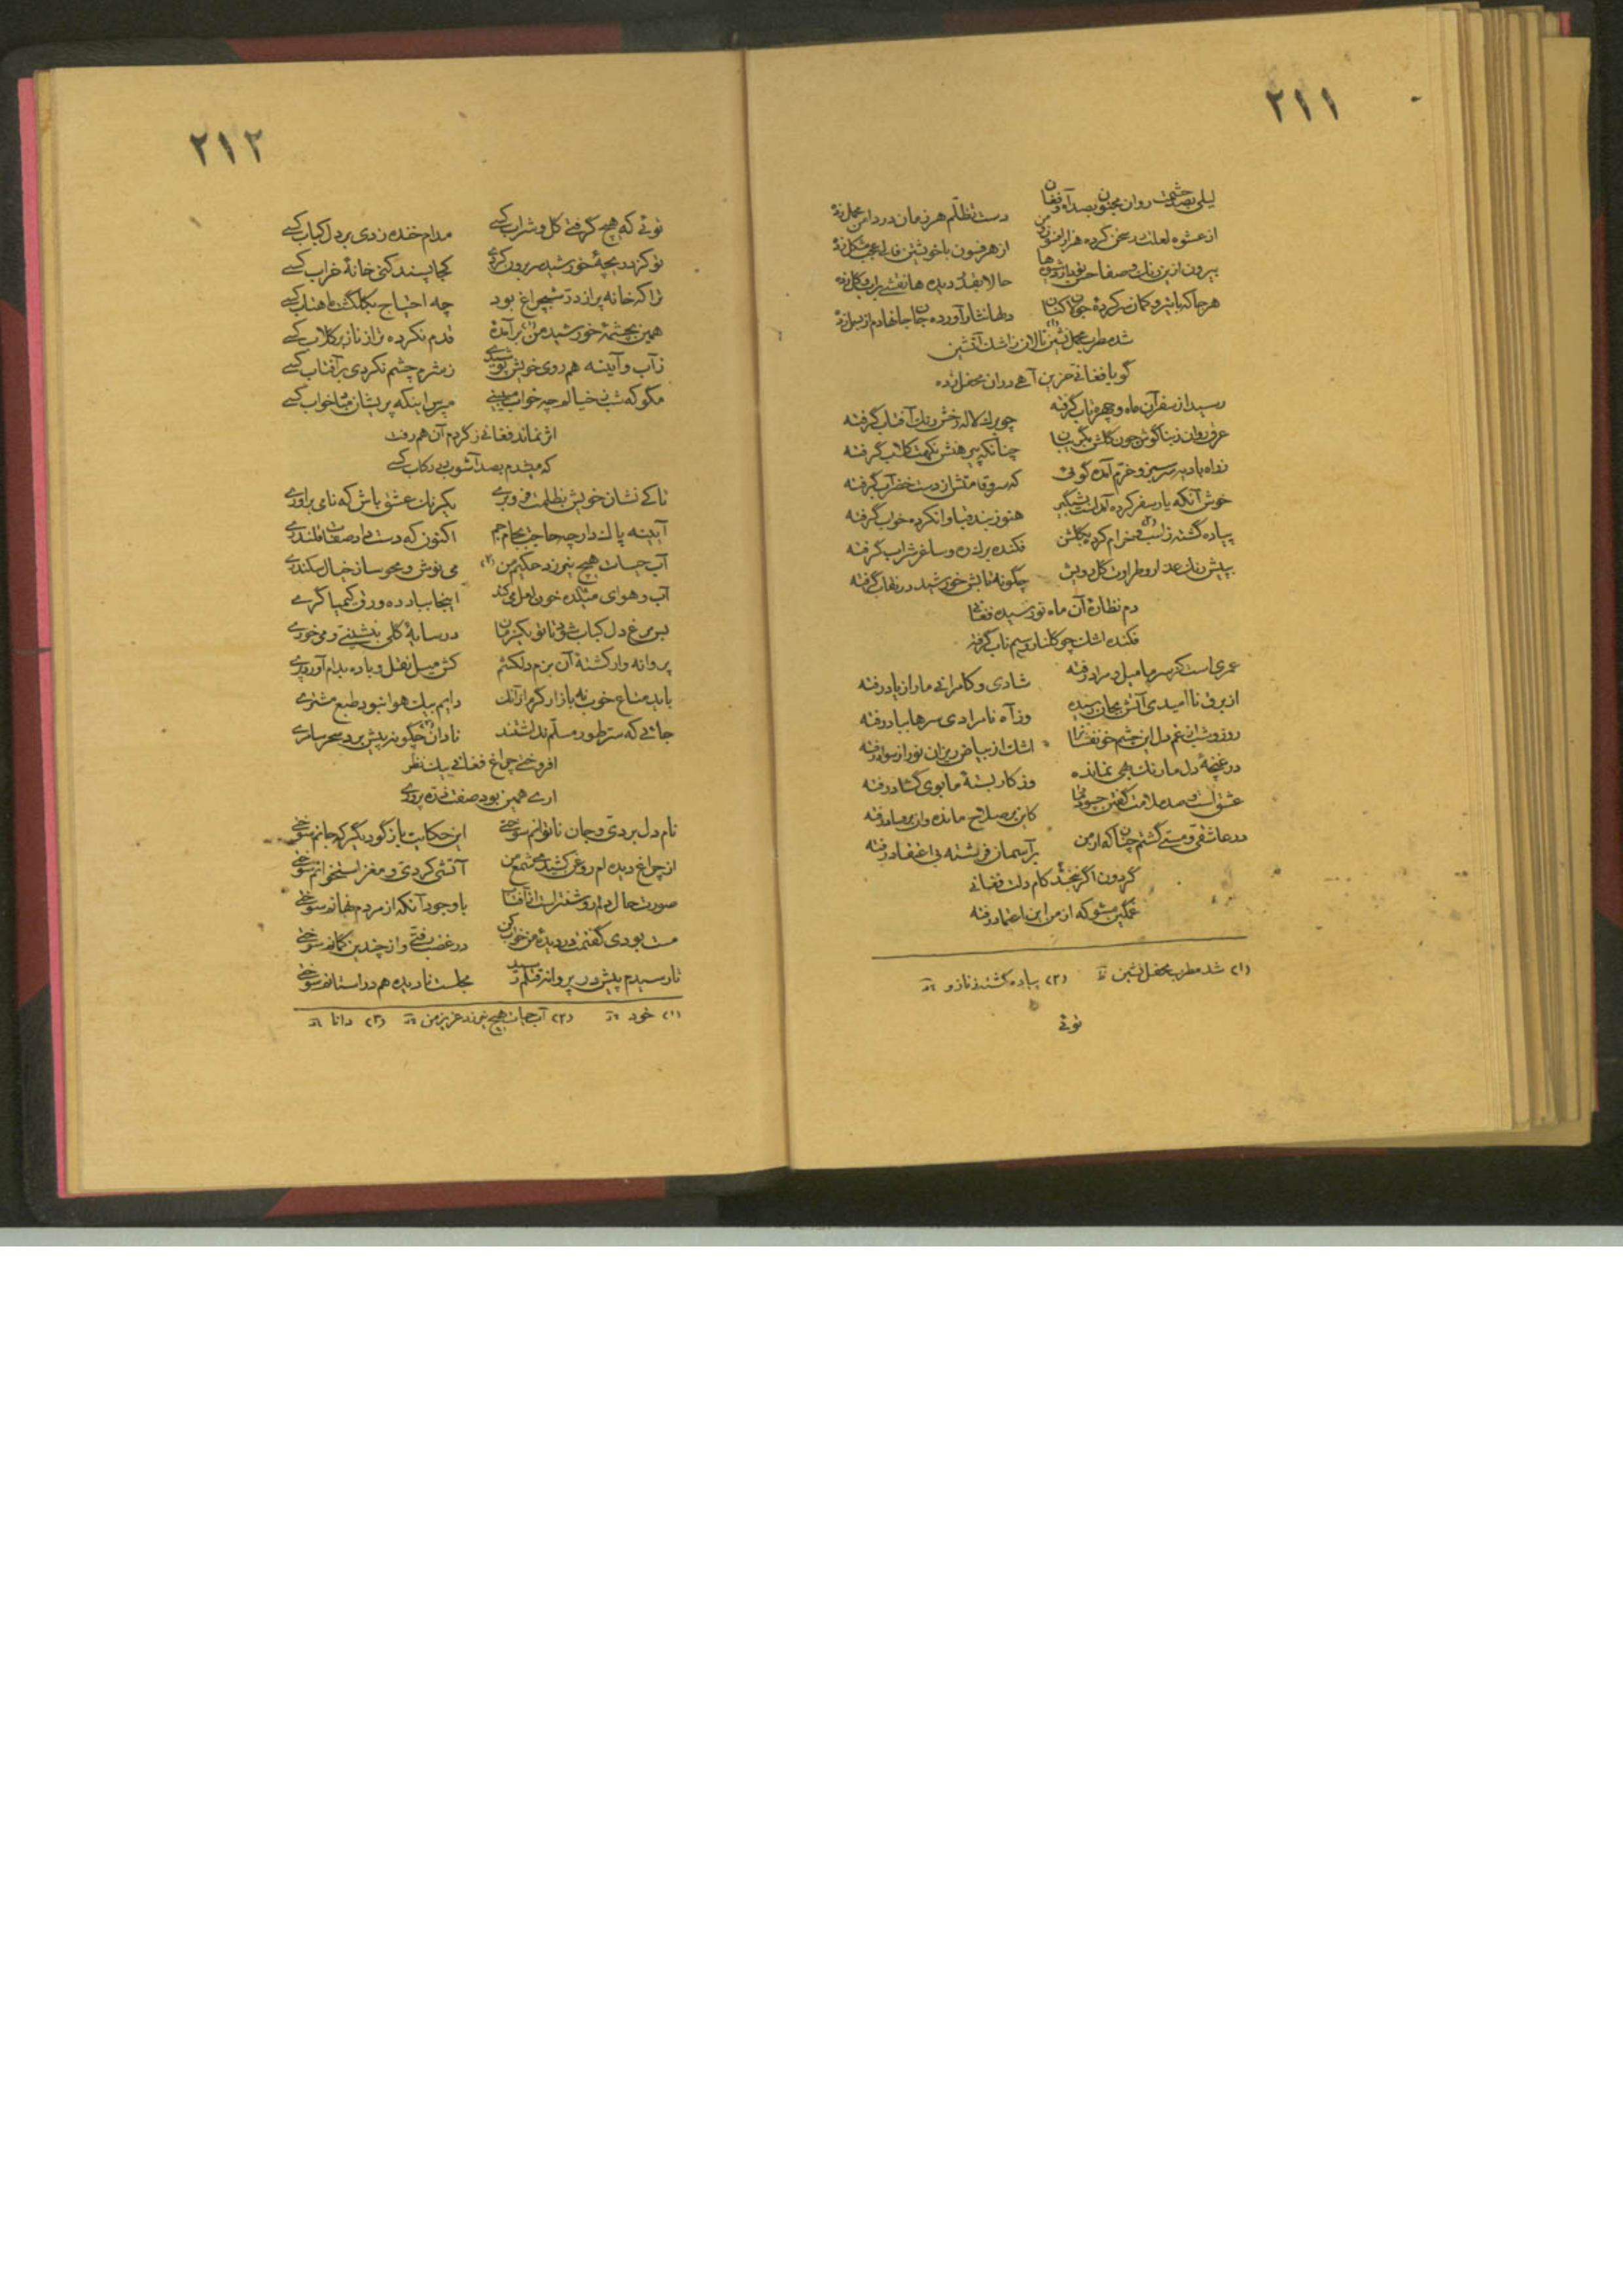 ۲۱۱
لیلی بصد حشمت روان مجنون بصد آه و فغان دست تظلّم هر زمان در دامن محمل زده
از عشوه لعلت در سخن کرده هزار افسون از هر فسون با خویشتن فالی عجب مشکل زده
بیرون ازین رنگ و صفا حالا بقید دیده ها نقشی برآب و گل زده
هر جا که با تیر و کمان سر کرده دلها نثار آورده جان جانها دم از بسمل زده
شد مطرب محمل نشین(۱) نالان ز اشک آتشین
گویا فغانی حزین آهی در ان محفل زده
رسید از سفر آن ماه و چهره تاب گرفته چو برگ لاله رخش رنگ آفتاب گرفته
عرق روان ز بناگوش چون گلش بگریبان چنانکه پیرهنش نکهت گلاب گرفته
ز راه بادیه سرسبز و خرّم آمده گوئی که سرو قامتش از دست خضر آب گرفته
خوش آنکه یار سفر کرده آمدست شبگیر هنوز بند قبا وا نکرده خواب گرفته
پیاده گشته ز اسب و(۲) خرام کرده بگلشن فکنده برگ ره و ساغر شراب گرفته
به پیش رنگ عذار و طراوت گل رویش چگونه تابش خورشید در نقاب گرفته
دم نظارهٔ آن ماه نو رسیده فغانی
فکنده اشک چو گلنار و سیم ناب گرفته
عمری است کز سر ما میل و مراد رفته شادی و کامرانی ما را ز یاد رفته
از برق ناامیدی آتش بجان رسیده وز آه نامرادی سرها بباد رفته
روز و شب از غم دل این چشم خونفشان را اشک از بیاض ریزان نور از سواد رفته
در غنچهٔ دل ما رنگ بهی نمانده وز کار بستهٔ ما بوی گشاد رفته
عشق است و صد ملامت گفتن چه سود ما را کاین بر صلاح مانده وان بر فساد رفته
در عاشقی و مستی گشتم چنان که از من بر آسمان فرشته بی اعتقاد رفته
گردون اگر نبخشد کام دلت فغانی
غمگین مشو که از من این اعتماد رفته
(۱) شد مطرب محفل نشین (۲) پیاده گشته ز ناز و
توئی
۲۱۲
توئی که هیچ گرفتی گل و شراب کسی مدام خنده زدی بر دل کباب کسی
تو کز دریچهٔ خورشید سر برون کردی کجا پسند کنی خانهٔ خراب کسی
ترا که خانه پر از درّ شبچراغ بود چه احتیاج بگلگشت ماهتاب کسی
همین بچشمهٔ خورشید من(۱) برآمدهٔ قدم نکرده تر از ناز بر گلاب کسی
ز آب و آینه هم روی خویش پوشیدی ز شرم چشم نکردی بر آفتاب کسی
مگو که شب ز خیالم چه خواب میبینی مپرس اینکه پریشان مباد خواب کسی
اثر نماند فغانی ز گردم آن هم رفت
که میشدم بصد آشوب در رکاب کسی
تا کی نشان خویش بظلمت فرو بری یکرنگ عشق باش که نامی برآوری
آیینه پاک دار چه حاجت بجام جم اکنون که دست داد صفات قلندری
آب حیات هیچ نیرزد حکیم من(۲) می نوش و محو ساز خیال سکندری
آب و هوای میکده خون لعل می کند اینجا بیاد ده ورق کیمیا گری
بس مرغ دل کباب شد تا تو یکزمان در سایهٔ گلی بنشینی و می خوری
پروانه وار کشتهٔ آن بزم دلکشم کش میل نقل و باده بدام آورد پری
باید متاع خوب نه بازار گرم ازانک دایم بیک هوا نبود طبع مشتری
جائی که سرّ طور مسلّم نداشتند نادان(۳) چگونه پیش برد سحر سامری
افروختی چراغ فغانی بیک نظر
آری همین بود صفت ذرّه پروری
نام دل بردی و جان ناتوانم سوختی این حکایت باز گو دیگر که جانم سوختی
از چراغ دیده ام روغن کشیدی شمع من آتشی کردی و مغز استخوانم سوختی
صورت حال دلم روشنتر است از آفتاب با وجود آنکه از مردم نهانم سوختی
مست بودی گفتمت در دیدهٔ من خواب کن در غضب رفتی و از چندین گمانم سوختی
نارسیدم پیش در پروانهٔ قتلم رسید مجلست نادیده هم در آستانم سوختی
(۱) خود (۲) آب حیات هیچ نیرزد عزیز من (۳) دانا